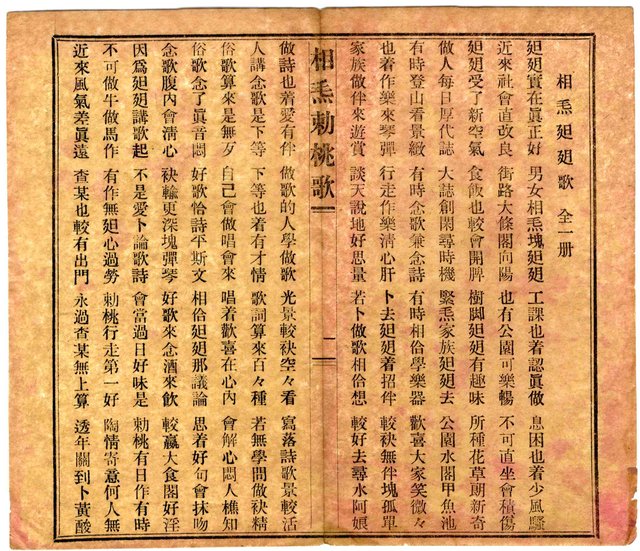 相𤆬廻廻歌 全一册
廻廻實在眞正好 男女相𤆬塊廻廻 工課也着認眞做 息困也着少風騷
近來社會直改良 街路大條閣向陽 也有公園可樂暢 不可直坐會積傷
廻廻受了新空氣 食飯也較會開脾 樹脚廻廻有趣味 所種花草朗新奇
做人每日厚代誌 大誌創閑尋時機 緊𤆬家族廻廻去 公園水閣甲魚池
有時登山看景緻 有時念歌兼念詩 有時相佮學樂器 歡喜大家笑微々
也着作樂來琴彈 行走作樂淸心肝 卜去廻廻着招伴 較袂無伴塊孤單
家族做伴來遊賞 談天說地好思量 若卜做歌相佮想 較好去尋水阿娘
相𤆬勅桃歌 一
做詩也着愛有伴 做歌的人學做歌 光景較袂空々看 寫落詩歌景較活
人講念歌是下等 下等也着有才情 歌詞算來百々種 若無學問做袂精
俗歌算來是無歹 自己會做唱會來 唱着歡喜在心內 會解心悶人樵知
俗歌念了眞音悶 好歌恰詩平斯文 相佮廻廻那議論 思着好句會抹吻
念歌腹內會淸心 袂輸更深塊彈琴 好歌來念酒來飮 較贏大食閣好淫
因爲廻廻講歌起 不是愛卜論歌詩 會當過日好味是 勅桃有日作有時
不可做牛做馬作 有作無廻心過勞 勅桃行走第一好 陶情寄意何人無
近來風氣差眞遠 查某也較有出門 永過查某無上算 透年關到卜黃酸